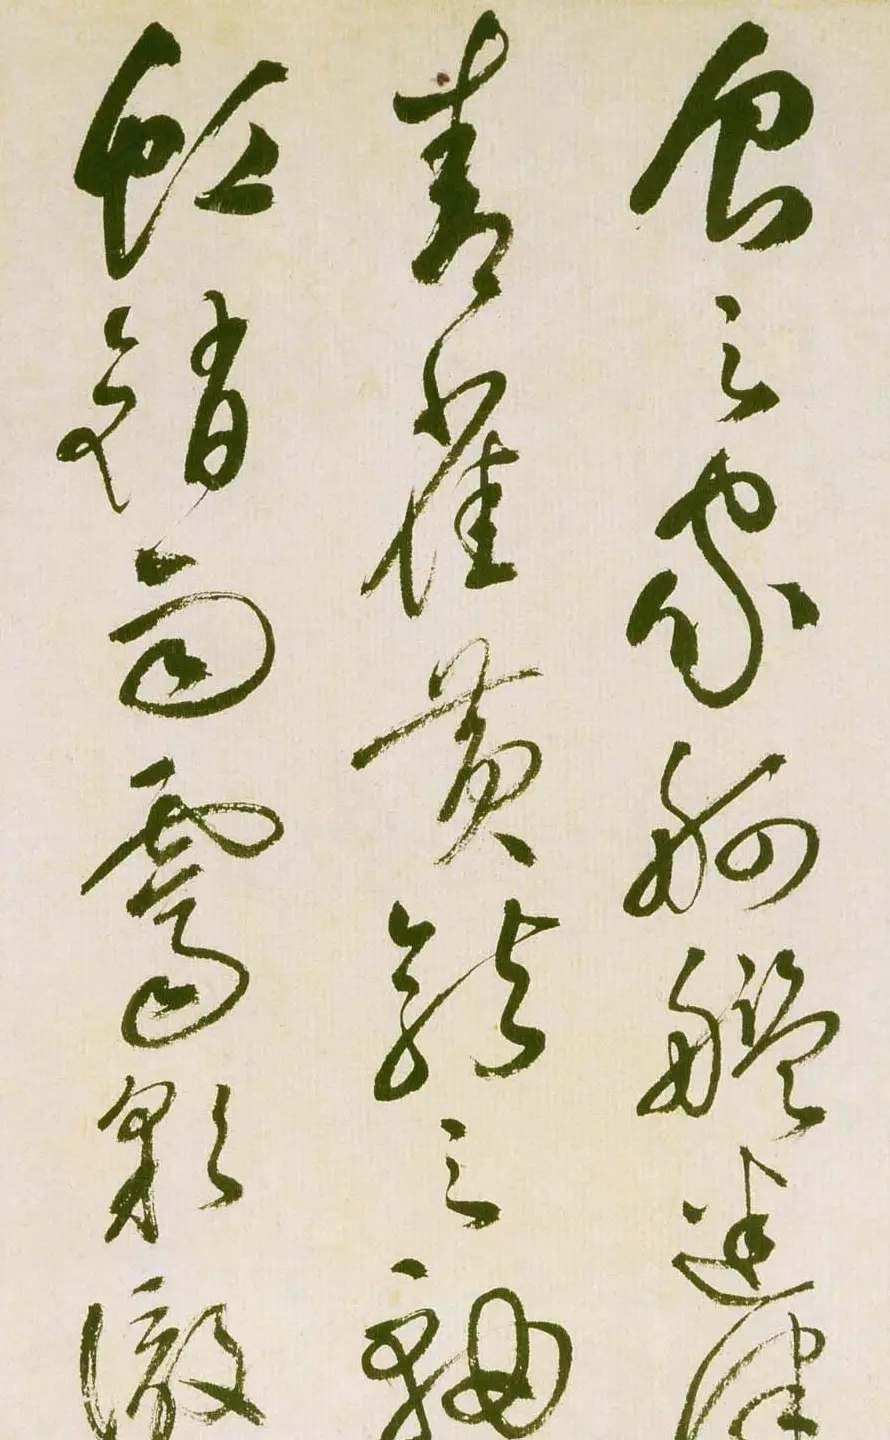 食之家舸艦迷津
青雀黄龍之軸
虹銷雨霽彩徹